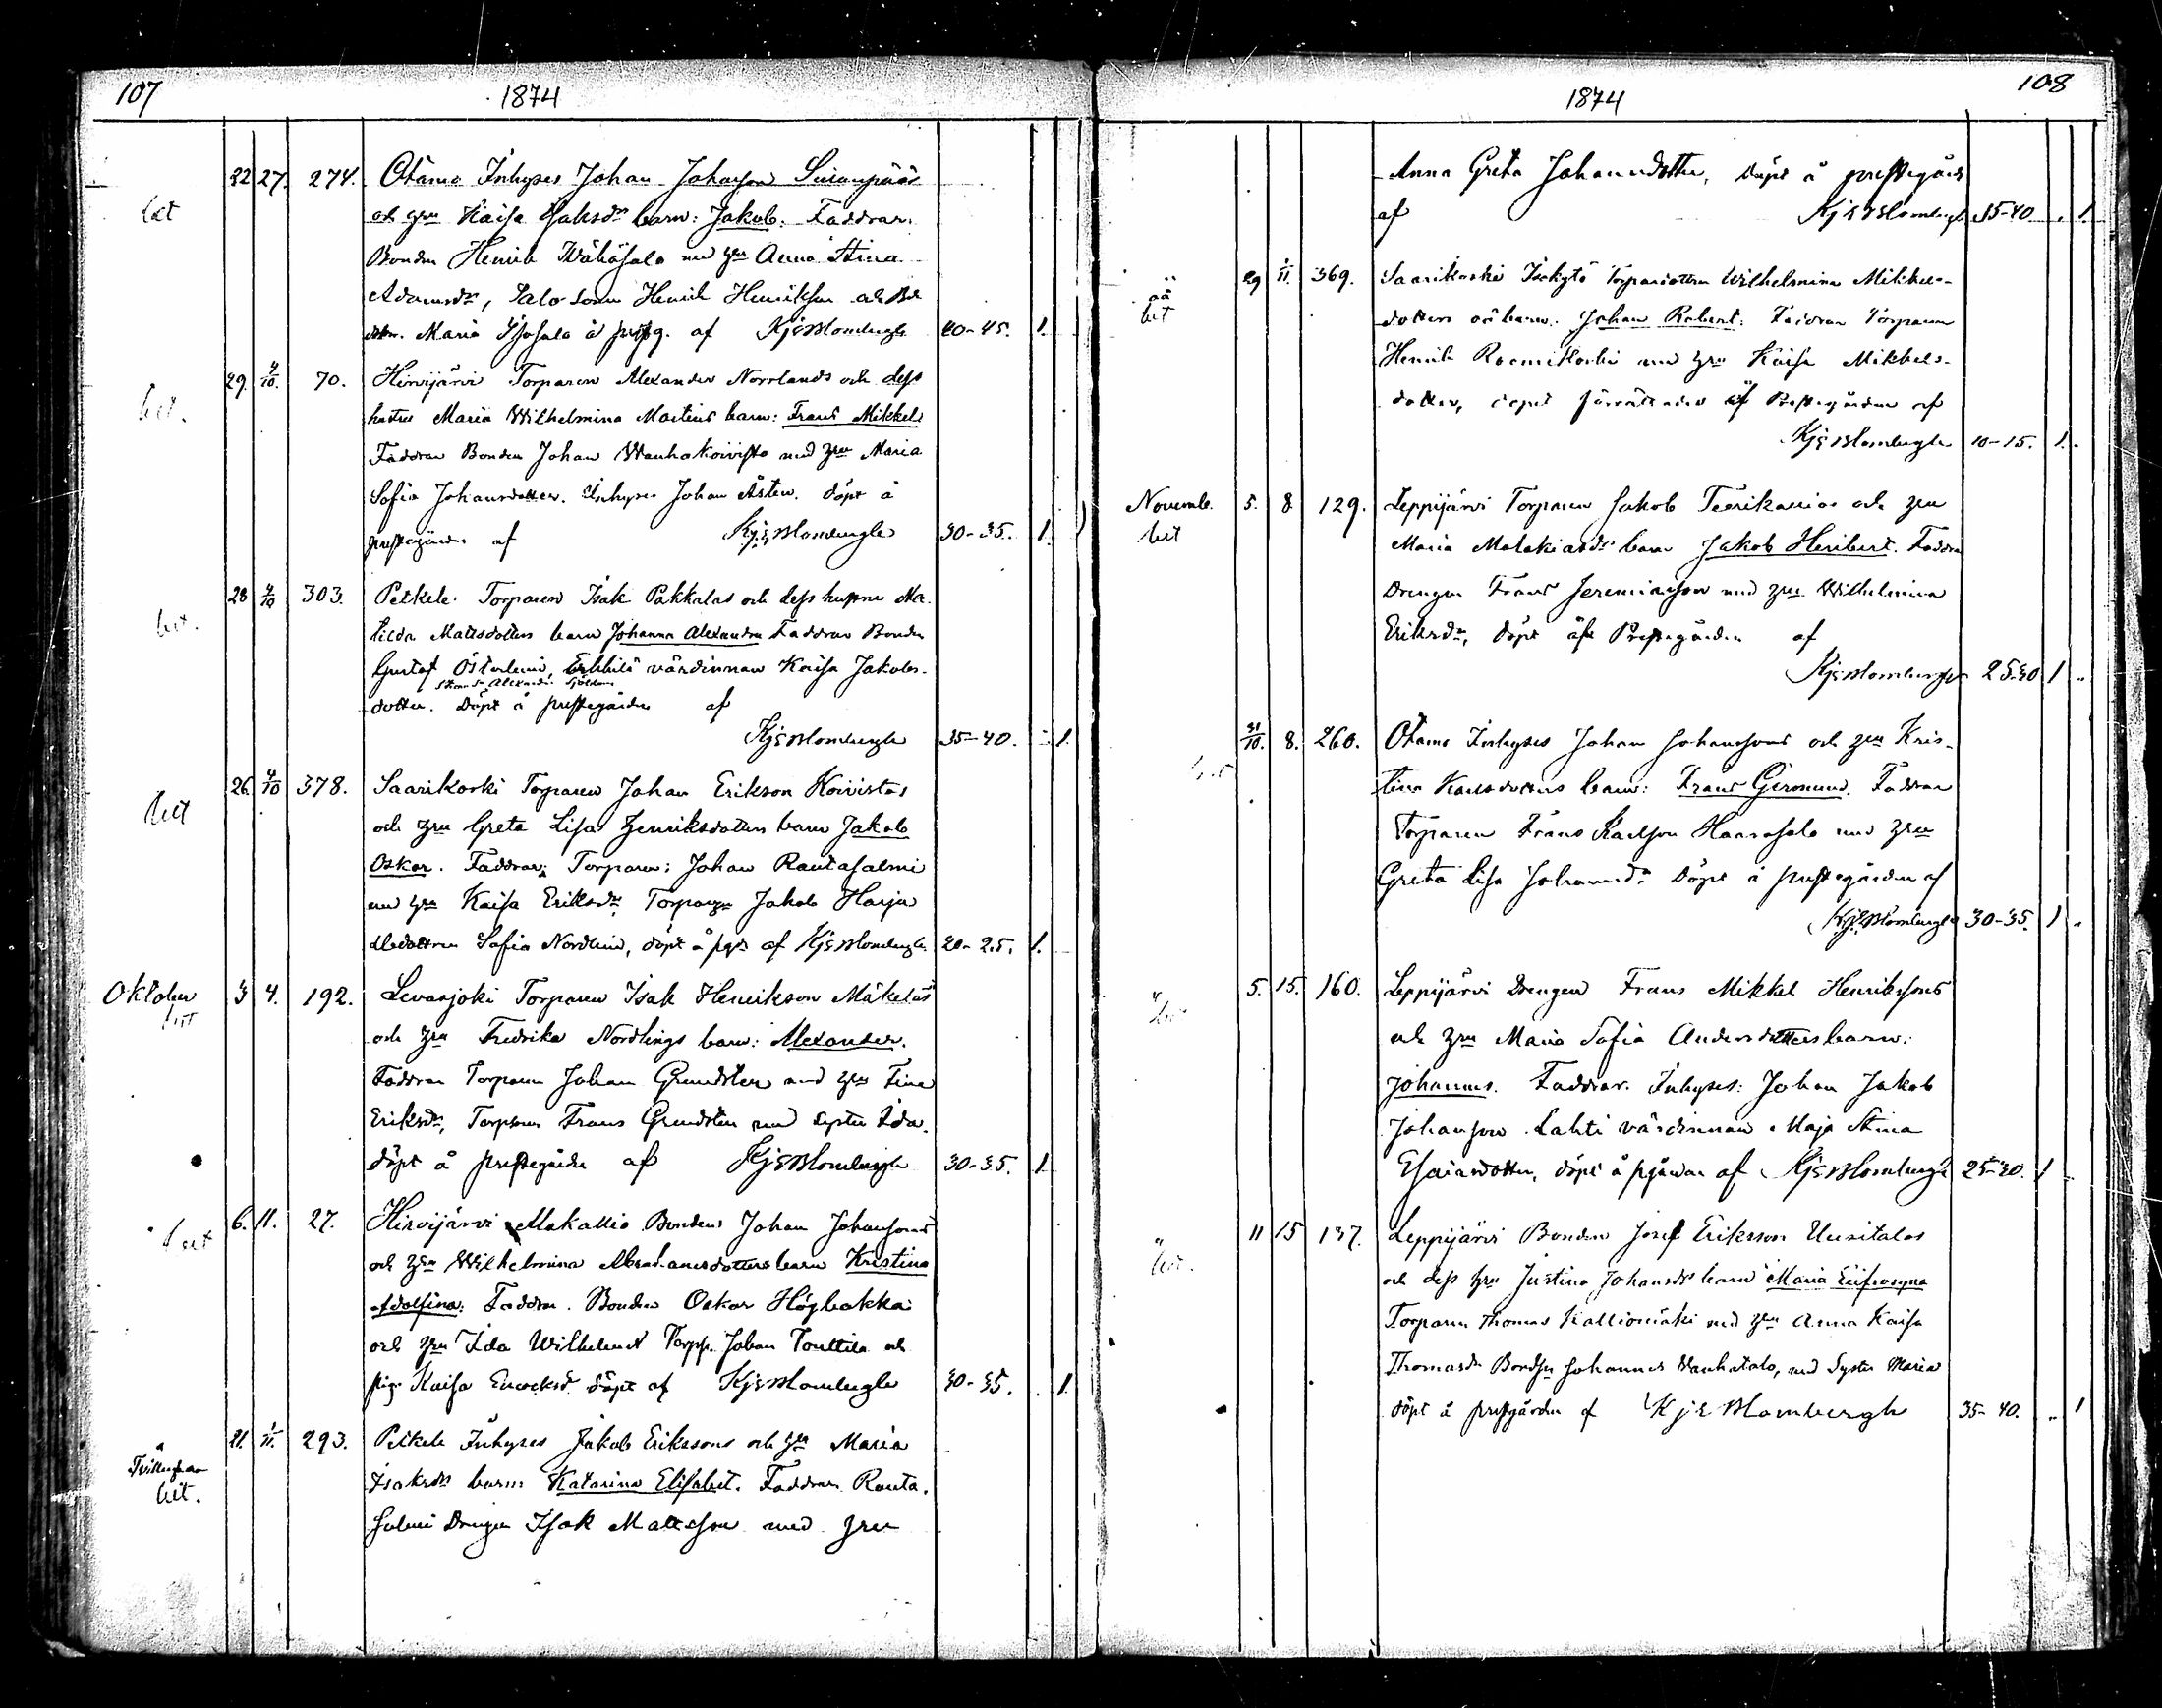 107
1874
bet
22 27. 274. Otamo Inhyses Johan Johanson
och hru Kaisa Isaksdr barn: Jakob. Faddrar:
Bonden Henrik Wähäsalo med hru Anna Stina
Adamsdr, Salo sonen Henrik Henrikson och
dottr. Maria Isosalo å prstg. af KjEBlombergh 40-45. 1.
bet.
29. 4/10. 70. Hirvijärvi Torparen Alexander Norrlands och dess
hustru Maria Wilhelmina Martins barn: Frans Mikkel
Faddrar Bonden Johan Wanhakoivisto med hru Maria
Sofia Johansdotter. Inhyses Johan Åsten. döpt å
prestegården af KjEBlombergh 30-35. 1.
bet.
28 4/10 303. Petkele. Torparen Isak Pakkalas och dess hustru Ma-
tilda Mattsdotters barn Johanna Alexandra Faddrar Bonden
Gustaf Österlund, Erkkilä värdinnan Kaisa Jakobs-
dotter. Döpt å prestegården af
KjEBlombergh 35-40. 1.
bet
26. 4/10 378. Saarikoski Torparen Johan Erikson Koivistos
och hru Greta Lisa Henriksdotters barn Jakob
Oskar. Faddrar: Torparen: Johan Rautasalmi
med hru Kaisa Eriksdr, Jakob Harju
Sofia Nordlund, döpt å pgd af KjEBlombergh 20-25. 1.
Oktober
bet
3 4. 192. Levasjoki Torparen Isak Henrikson Mäkeläs
och hru Fredrika Nordlings barn: Alexander.
Faddrar Torparen Johan Grundsten med hru Fina
Eriksdr, Torpson Frans Grundsten med syster Ida.
döpt å prestegården af KjEBlombergh 30-35. 1
bet
6. 11. 27. Hirvijärvi Makallio Bondens Johan Johansons
och hru Wilhelmina Abrahamsdotters barn Kristina
Adolfina: Faddrar. Bonden Oskar Högbakka
och hru Ida Wilhelmsd Torpp. Johan Touttila och
pig. Kaisa Enocksd. döpt af KjEBlombergh 30-35. 1.
bet.
21. 1/11. 293. Petkele Inhyses Jakob Erikssons och hru Maria
Isaksdrs barn: Katarina Elisabet. Faddrar Rauta-
salmi Drengen Isak Mattsson med hru
108
1874
Anna Greta Johansdotter, döpt å prestegård
af KjEBlombergh 35-40 . 1.
oä
bet
29 1/11. 369. Saarikoski Isokytö Torparedottern Wilhelmina Mikkels-
dotters oä barn. Johan Robert. Faddrar Torparen
Henrik med hru Kaisa Mikkels-
dotter, dopet förrättades af
KjEBlombergh 10-15. 1.
Novemb.
bet
5. 8 129. Leppijärvi Torparen Jakob Teerikanias och hru
Maria Malakiasdr barn Jakob Heribert. Faddra
Drengen Frans Jeremiasson med hru Wilhelmina
Eriksdr, döpt å Prestegården af
KjEBlombergh 25-30 1
31/10. 8. 260. Otamo Inhyses Johan Johanssons och hru Kris-
tina Karlsdotters barn: Frans Germund. Faddrar
Torparen Frans Karlson Haarasalo med hru
Greta Lisa Johansdr döpt å prestegården af
KjEBlombergh 30-35. 1
5. 15. 160. Leppijärvi Drengen Frans Mikkel Henrikssons
och hru Maria Sofia Andersdotters barn:
Johannes. Faddrar. Inhyses: Johan Jakob
Johanson Lahti värdinnan Maja Stina
Esaiasdotter, döpt å pgården af KjEBlombergh 25-30. 1
11 15 137. Leppijärvi Bonden Josef Eriksson Uusitalos
och dess hru Justina Johansdrs barn Maria Eufrosyna
Torparen Thomas Kalliomäki med hru Anna Kaisa
Thomasdr Bondsn Johannes Wanhatalo, med Syster Maria
döpt å prestgården af KjEBlombergh 35-40. 1